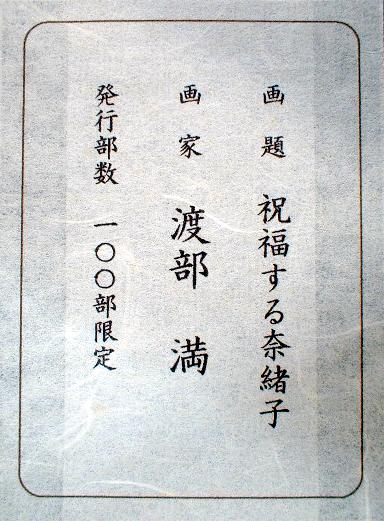 画題 祝福する奈緒子
画家 渡部 満
発行部数 一〇〇部限定